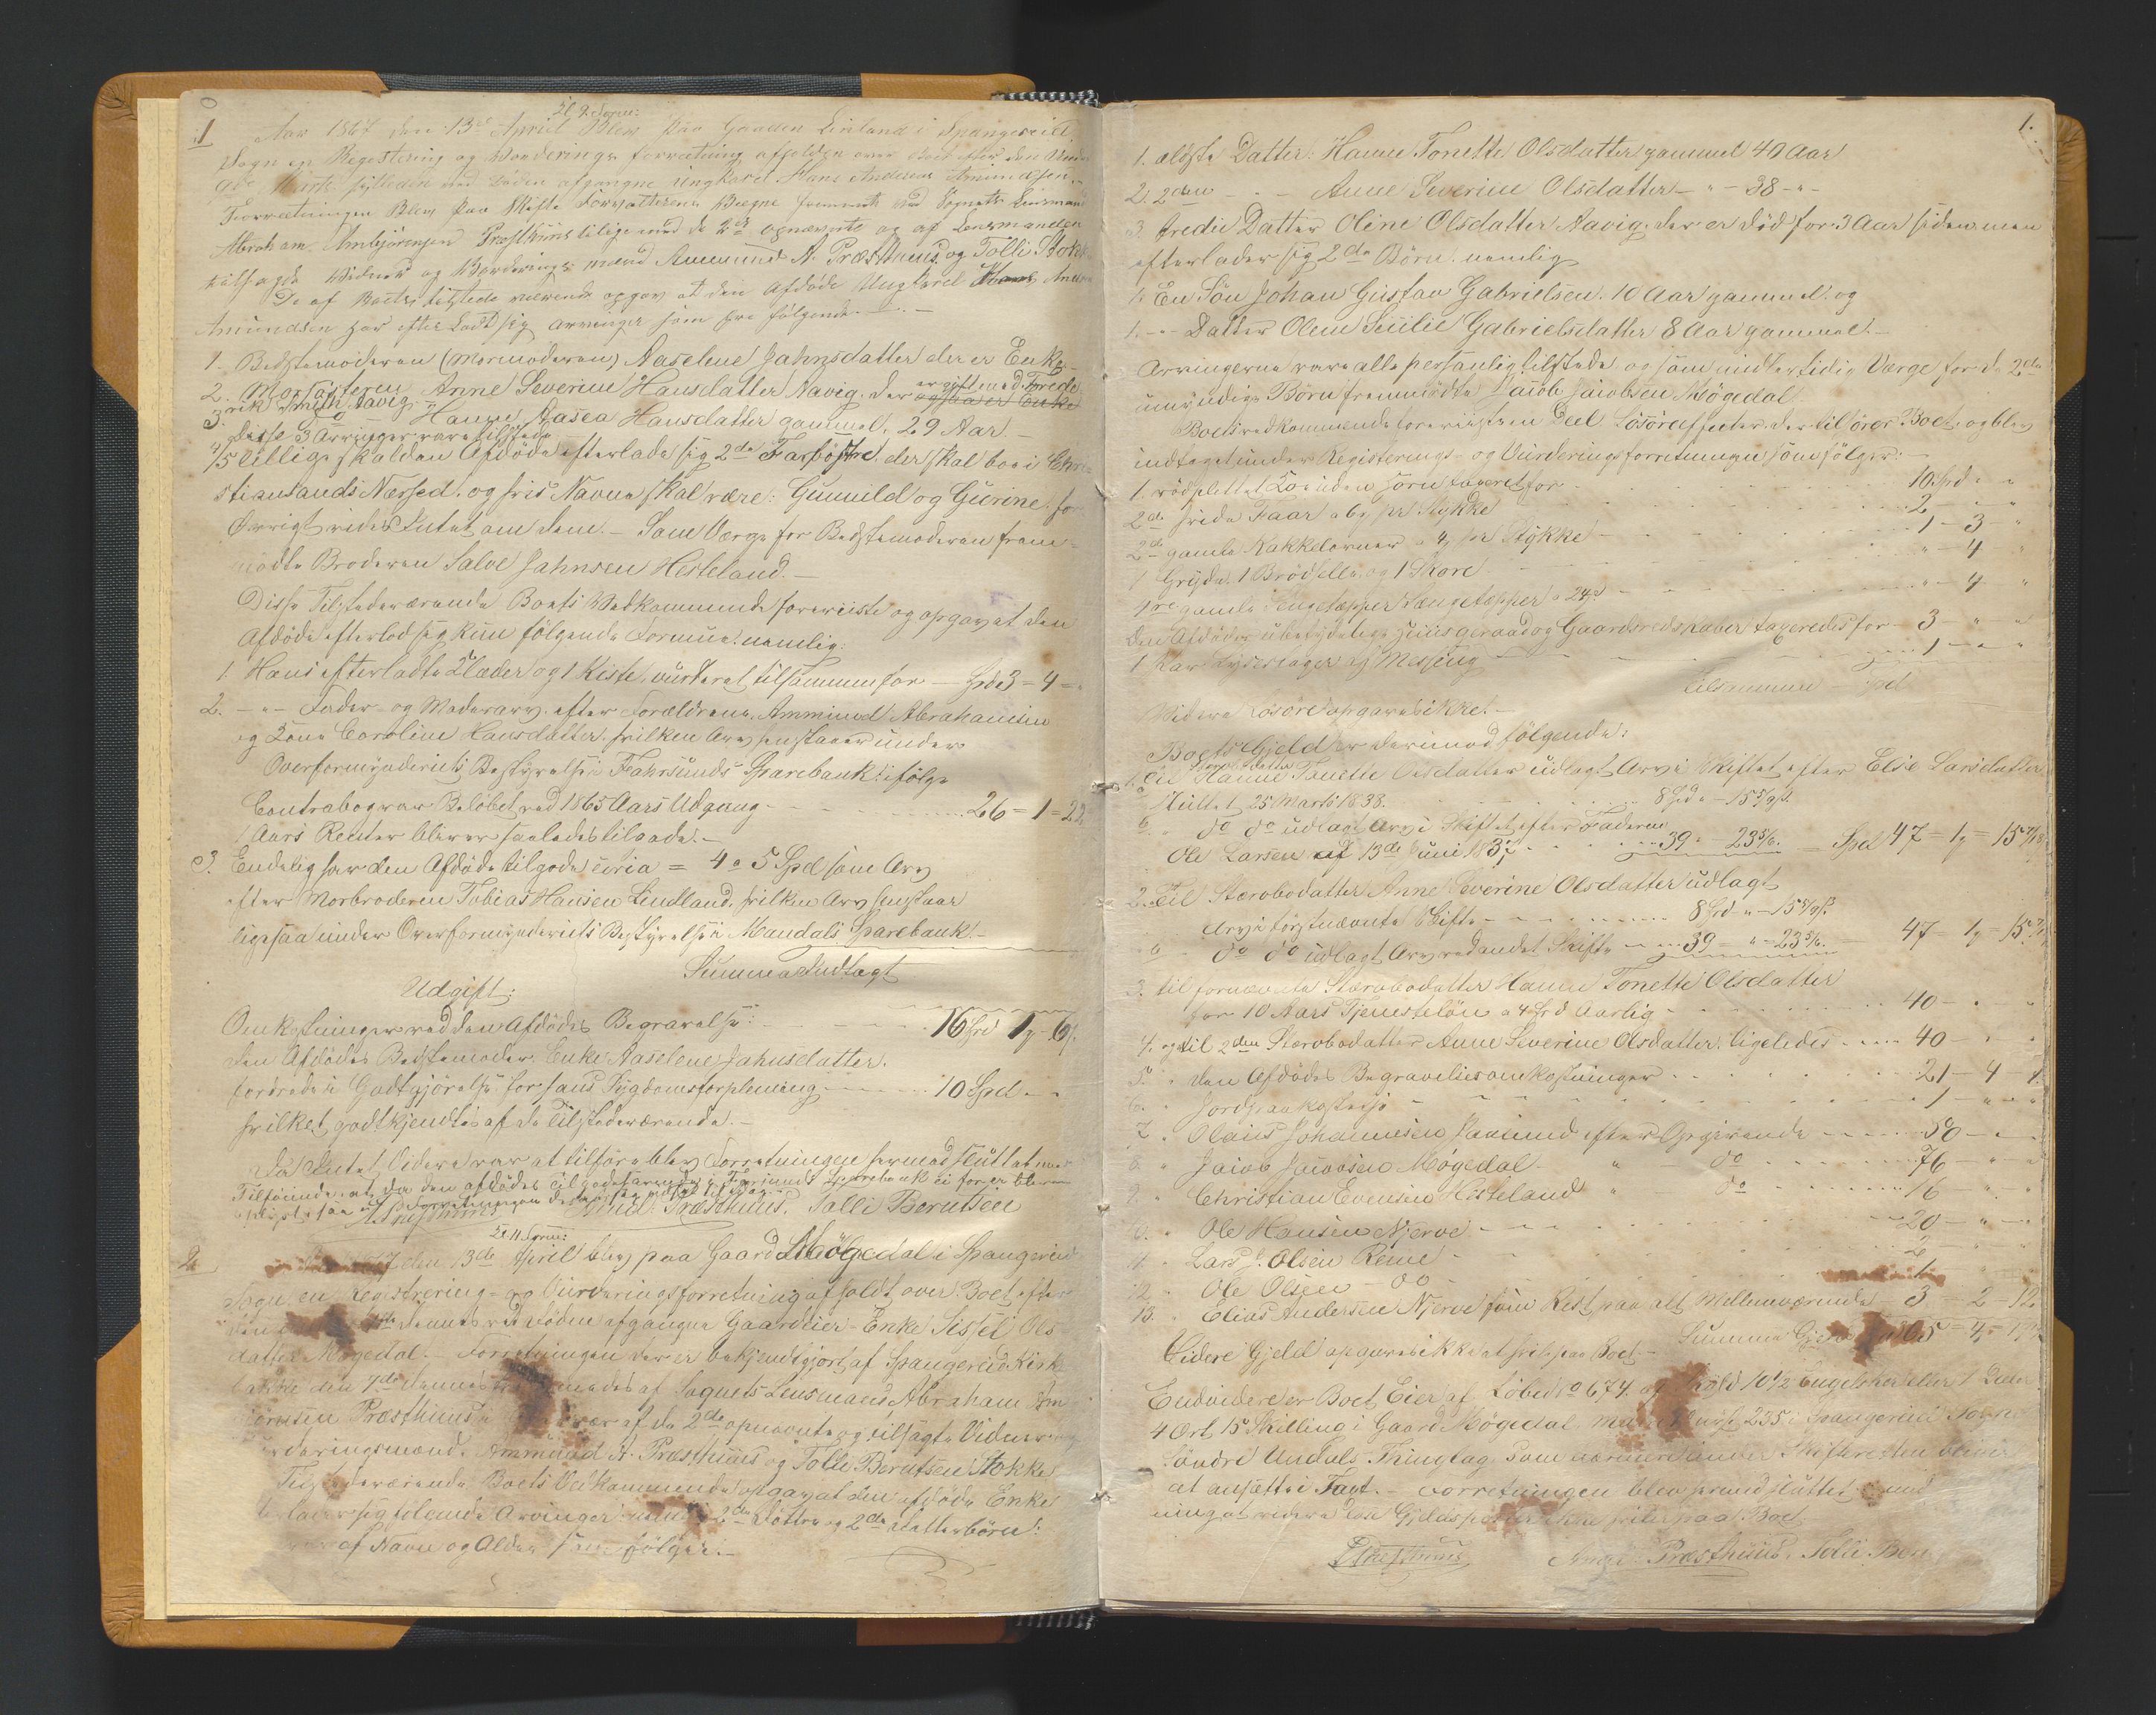 1
Kl. 9 Form:
Aar 1867 den 13de April Blev paa Gaarden Lindland i Spangereid
Sogn en Registering og Vurderings forretning afholden over Boet efter den
Marts sidstleden ved Døden afgangne Ungkarl Hans Andreas Amundsen.
Forretningen Blev paa Skifte Forvalterens Vegne fremmet ved Sognets Lensmand
Abraham Ambjörnsen Præsthuus tilligemed de 2de opnævnte og af Lensmanden
tilsagde Vidner og Vurderings mænd Ammund A. Præsthuus og Tolli Stokke
De af Boets tilstede værende opgav at den Afdøde Ungkarl Hans Andreas
Amundsen har efter Ladt sig arvinger som her følgende. —
1. Bedstemoderen (Mormoderen) Aaselene Jahnsdatter der er Enke
2. Morsösteren Anne Severine Hansdatter Aavig. der er gift med Frede
rik Smith Aavig
3. do Hanne Aasea Hansdatter gammel. 29 Aar. —
disse 3 Arvinger vare tilstede
4/5 tillige skal den Afdøde efterlade sig 2de Farsöstre. der skal boe i Chri
stiansands Næshed. og hvis Navne skal være: Gunnild og Gurine. for
Øvrigt vides Intet om dem. — Som Værge for Bedstemoderen frem=
mødte Broderen Salve Jahnsen Hesteland. —
Disse Tilstedeværende Boets Vedkommende foreviiste og opgav at den
Afdöde efterlod sig kun følgende Formue. nemlig:
1. Hans efterladte Klæder og 1 Kiste. vurderet tilsammen for — Spd 3 = 4 =
2. — " — Fader og Moderarv. efter Forældrene. Ammund Abrahamsen
og Kone Caroline Hansdatter. hvilken Arv henstaaer under
Overformynderiets Bestyrelse i Fahrsunds Sparebank. ifølge
Contrabog var Beløbet ved 1865 Aars Udgang - - - 26 = 1 = 22
1 Aars Renter bliver saaledes tilgode. —
3. Endelig har den Afdöde tilgode circa = 4 a 5 Spd som Arv
efter Morbroderen Tobias Hansen Lindland. hvilken Arv henstaar
ligesaa under Overformynderiets Bestyrelse i Mandals Sparebank. —
Summa Indtægt
Udgift:
Omkostninger ved den Afdödes Begravelse: - - - 16 Spd 1 - 6
den Afdödes Bedstemoder. Enke Aaselene Jahnsdatter.
fordrede i Godtgjörelse for hans Sygdomsforpleining - - - 10 Spd - -
hvilket godtkjendtes af de Tilstedeværende. —
Da Intet Videre var at tilføre blev Forretningen hermed sluttet med
Tilföiende. at da den afdödes tilgodehavende i Farsunds Sparebank ei för er bleven
A. Præsthuus. Amd. Præsthuus. Tolli Berntsen
2
Kl 11 Form:
den 13de April blev paa Gaard Mögedal i Spangereid
Sogn en Registrering- og Vurderingsforretning afholdt over Boet efter
den ved döden afgangne Gaardeier-Enke Sissel Ols
datter Mögedal. — Forretningen der er bekjendtgjort af Spangereid Kirke
bakke den 7de dennes af Sognets Lensmand Abraham Am
björnsen Præsthuus af de 2de opnævnte og tilsagte Vidner og
Vurderingsmænd. Ammund A. Præsthuus og Tolli Berntsen Stokke
Tilstedeværende Boets Vedkommende opgav at den afdøde Enke
efterlader sig fölgende Arvinger. 2de Döttre og 2de datterbörn:
af Navn og Alder som følger. —
1.
1. ældste Datter: Hanne Tonette Olsdatter gammel 40 Aar
2. 2den — — Anne Severine Olsdatter — " — 38 — " —
3 tredie Datter Oline Olsdatter Aavig. der er död for 3 Aar siden. men
efterlader sig 2de Börn. nemlig
1. En Sön Johan Gustav Gabrielsen. 10 Aar gammel. og
1. — " — Datter Olene Seiilie Gabrielsdatter 8 Aar gammel. —
Arvingerne vare alle personlig tilstede og som midlertidig Værge for de 2de
umyndige Börn fremmödte Jacob Jacobsen Mögedal.
Boets vedkommende foreviiste en Deel Lösöreeffecter. der tilhörer Boet. og blev
indtaget under Registrerings- og Vurderingsforretningen som fölger: —
1. rödplettet Ko uden Horn taxeret for - - - 10 Spd " "
2de hvide Faar a 1 pr Stykke - - - 2 - " "
2de gamle Kakkelovner a 4 pr Stykke - - - 1 - 3 - "
1 Gryde. 1 Brödhelle. og 1 Skore - - - " - 4 "
4re gamle Sengetepper a 24 s - - - " - 4 - "
Den Afdödes ubetydelige Huusgeraad og Gaardsredskaber taxeredes for - 3 - " "
1 Par Lysestager af Messing - - - 1 - " "
tilsammen - Spd
Videre Lösöre opgaves ikke. —
Boets Gjeld er derimod fölgende:
1. a Til Stervbodatter Hanne Tonette Olsdatter udlagt Arv i Skiftet efter Else Larsdatter
sluttet 25 Marts 1838. - - - 8 Spd " - 15 5/9 s.
b. " do do udlagt Arv i Skiftet efter Faderen
Ole Larsen af 13de Juni 183 - - - 39 " - 23 5/6. - Spd 47 = 1 = 15 7/18
2. a Til Stærvbodatter Anne Severine Olsdatter udlagt
Arv i förstnævnte Skifte - - - 8 Spd - " - 15 5/9 s.
b - do do udlagt Arv ved andet Skifte - - 39 - " - 23 5/6. 47 = 1 = 15 7/18
3. til fornævnte Stærvbodatter Hanne Tonette Olsdatter
for 10 Aars Tjenestelön a 4 Spd Aarlig - - - 40 - " "
4. og til 2den Stærvbodatter Anne Severine Olsdatter. ligeledes - - - 40 - " "
5. " den Afdödes Begravelsesomkostninger - - - 21 - 4 -
6. " Jordpaakastelse - - - 1 - " "
7. " Olaus Johannesen efter Opgivende - - - 50 - "
8. " Jacob Jacobsen Mögedal. " - do - - - 76 - " -
9. " Christian Evensen Hesteland " - do - - - 16 " "
10. " Ole Hansen Njerve - - - 20 - " -
11. " Lars J. Olsen Reme - - - 2 "
12. " Ole Olsen - do - - - 1
13. " Elias Andersen Njerve som Rest paa alt Mellemværende - 3 = 2 - 12
Summa Gjeld
Videre Gjeld opgaves ikke at hvile paa Boet —
Endvidere er Boet Eier af Löbe No 674 af Skyld 10 1/2 Engelsker eller 1 Daler
4 Ort 15 Skilling i Gaard Mögedal 235 i Spangereid Sogn
Söndre Undals Thinglag. Som nærmere under Skifteretten bliver
at ansætte i Taxt. — Forretningen blev herved sluttet med
Boet
A. Præsthuus Amd. Præsthuus. Tolli Ber